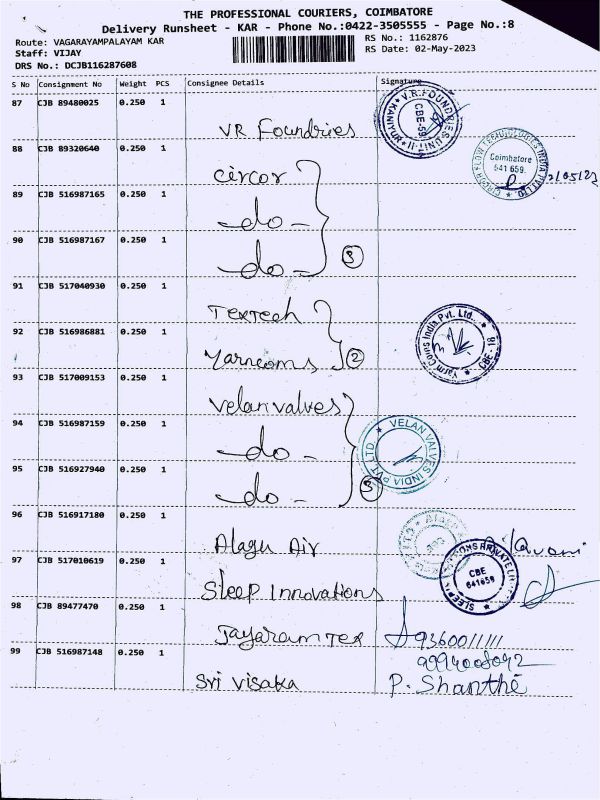 THE PROFESSIONAL COURIERS, COIMBATORE
Delivery Runsheet - KAR - Phone No.:0422-3505555 - Page No.:8
Route: VAGARAYAMPALAYAM KAR
RS No.: 1162876
Staff: VIJAY
RS Date: 02-May-2023
DRS No.: DCJB116287608
S No Consignment No Weight PCS Consignee Details Signature
87 CJB 89480025 0.250 1
VR Foundries
V.R.FOUNDRIES UNIT-II KANIYUR CBE-59
88 CJB 89320640 0.250 1
Circor
CIRCOR FLOW TECHNOLOGIES INDIA PVT LTD. Coimbatore 641 659.
89 CJB 516987165 0.250 1
-do-
90 CJB 516987167 0.250 1
-do- 3
91 CJB 517040930 0.250 1
Textech
92 CJB 516986881 0.250 1
Yarncoms 2
Yarm Coins India Pvt. Ltd.
93 CJB 517009153 0.250 1
Velan valves
94 CJB 516987159 0.250 1
-do-
VELAN VALVES INDIA PVT. LTD.
95 CJB 516927940 0.250 1
-do- 3
96 CJB 516917180 0.250 1
Alagu Air
97 CJB 517010619 0.250 1
Sleep Innovations
CBE 641659
98 CJB 89477470 0.250 1
Jayaram Tex 9360011111
99 CJB 516987148 0.250 1
9994008042
Sri Visaka P. Shanthe